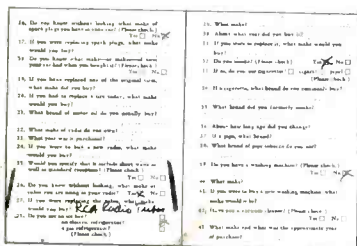 16. Do you know without looking what make of
spark plugs you have in your car? (Please check.)
Yes No
17. If you were replacing spark plugs, what make
would you buy?
18. Do you know what make
you had when you bought it? (Please check.)
Yes No
19. If you have replaced one of the original
what make did you buy?
20. If you had to replace a tube today, what make
would you buy?
21. What brand of motor oil do you usually buy?
22. What make of radio do you own?
23. What year was it purchased?
24. If you were to buy a new radio, what make
would you buy?
25. Would you specify that it include short wave as
well as standard reception? (Please check.)
Yes No
26. Do you know without looking, what make of
tubes you are using in your radio? Yes No
27. If you were replacing the tubes, what make
would you buy? RCA Radio Tubes
28. Do you use an ice box?
an electric refrigerator?
a gas refrigerator?
(Please check.)
29. What make?
30. About what year did you buy it?
31. If you were to replace it, what make would you
buy?
32. Do you smoke? (Please check.) Yes No
33. If so, do you use cigarettes? cigars? pipe?
(Please check.)
34. If cigarettes, what brand do you commonly buy?
35. What brand did you formerly smoke?
36. About how long ago did you change?
37. If a pipe, what brand?
38. What brand of pipe tobacco do you use?
39. Do you have a washing machine? (Please check.)
Yes No
40. What make?
41. If you were to buy a new washing machine, what
make would it be?
42. Do you a vacuum cleaner? (Please check.)
Yes No
43. What make and what was the approximate year
of purchase?